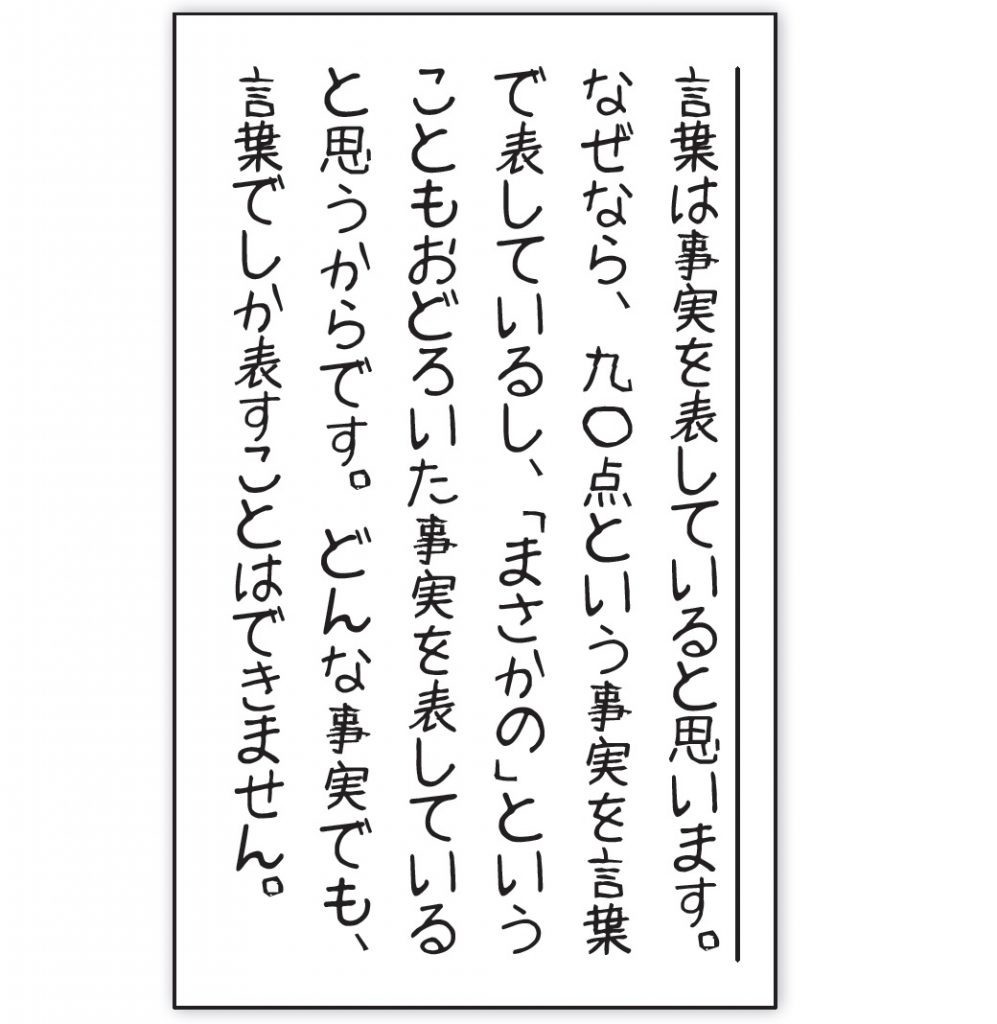 言葉は事実を表していると思います。
なぜなら、九〇点という事実を言葉
で表しているし、「まさかの」という
こともおどろいた事実を表している
と思うからです。どんな事実でも、
言葉でしか表すことはできません。